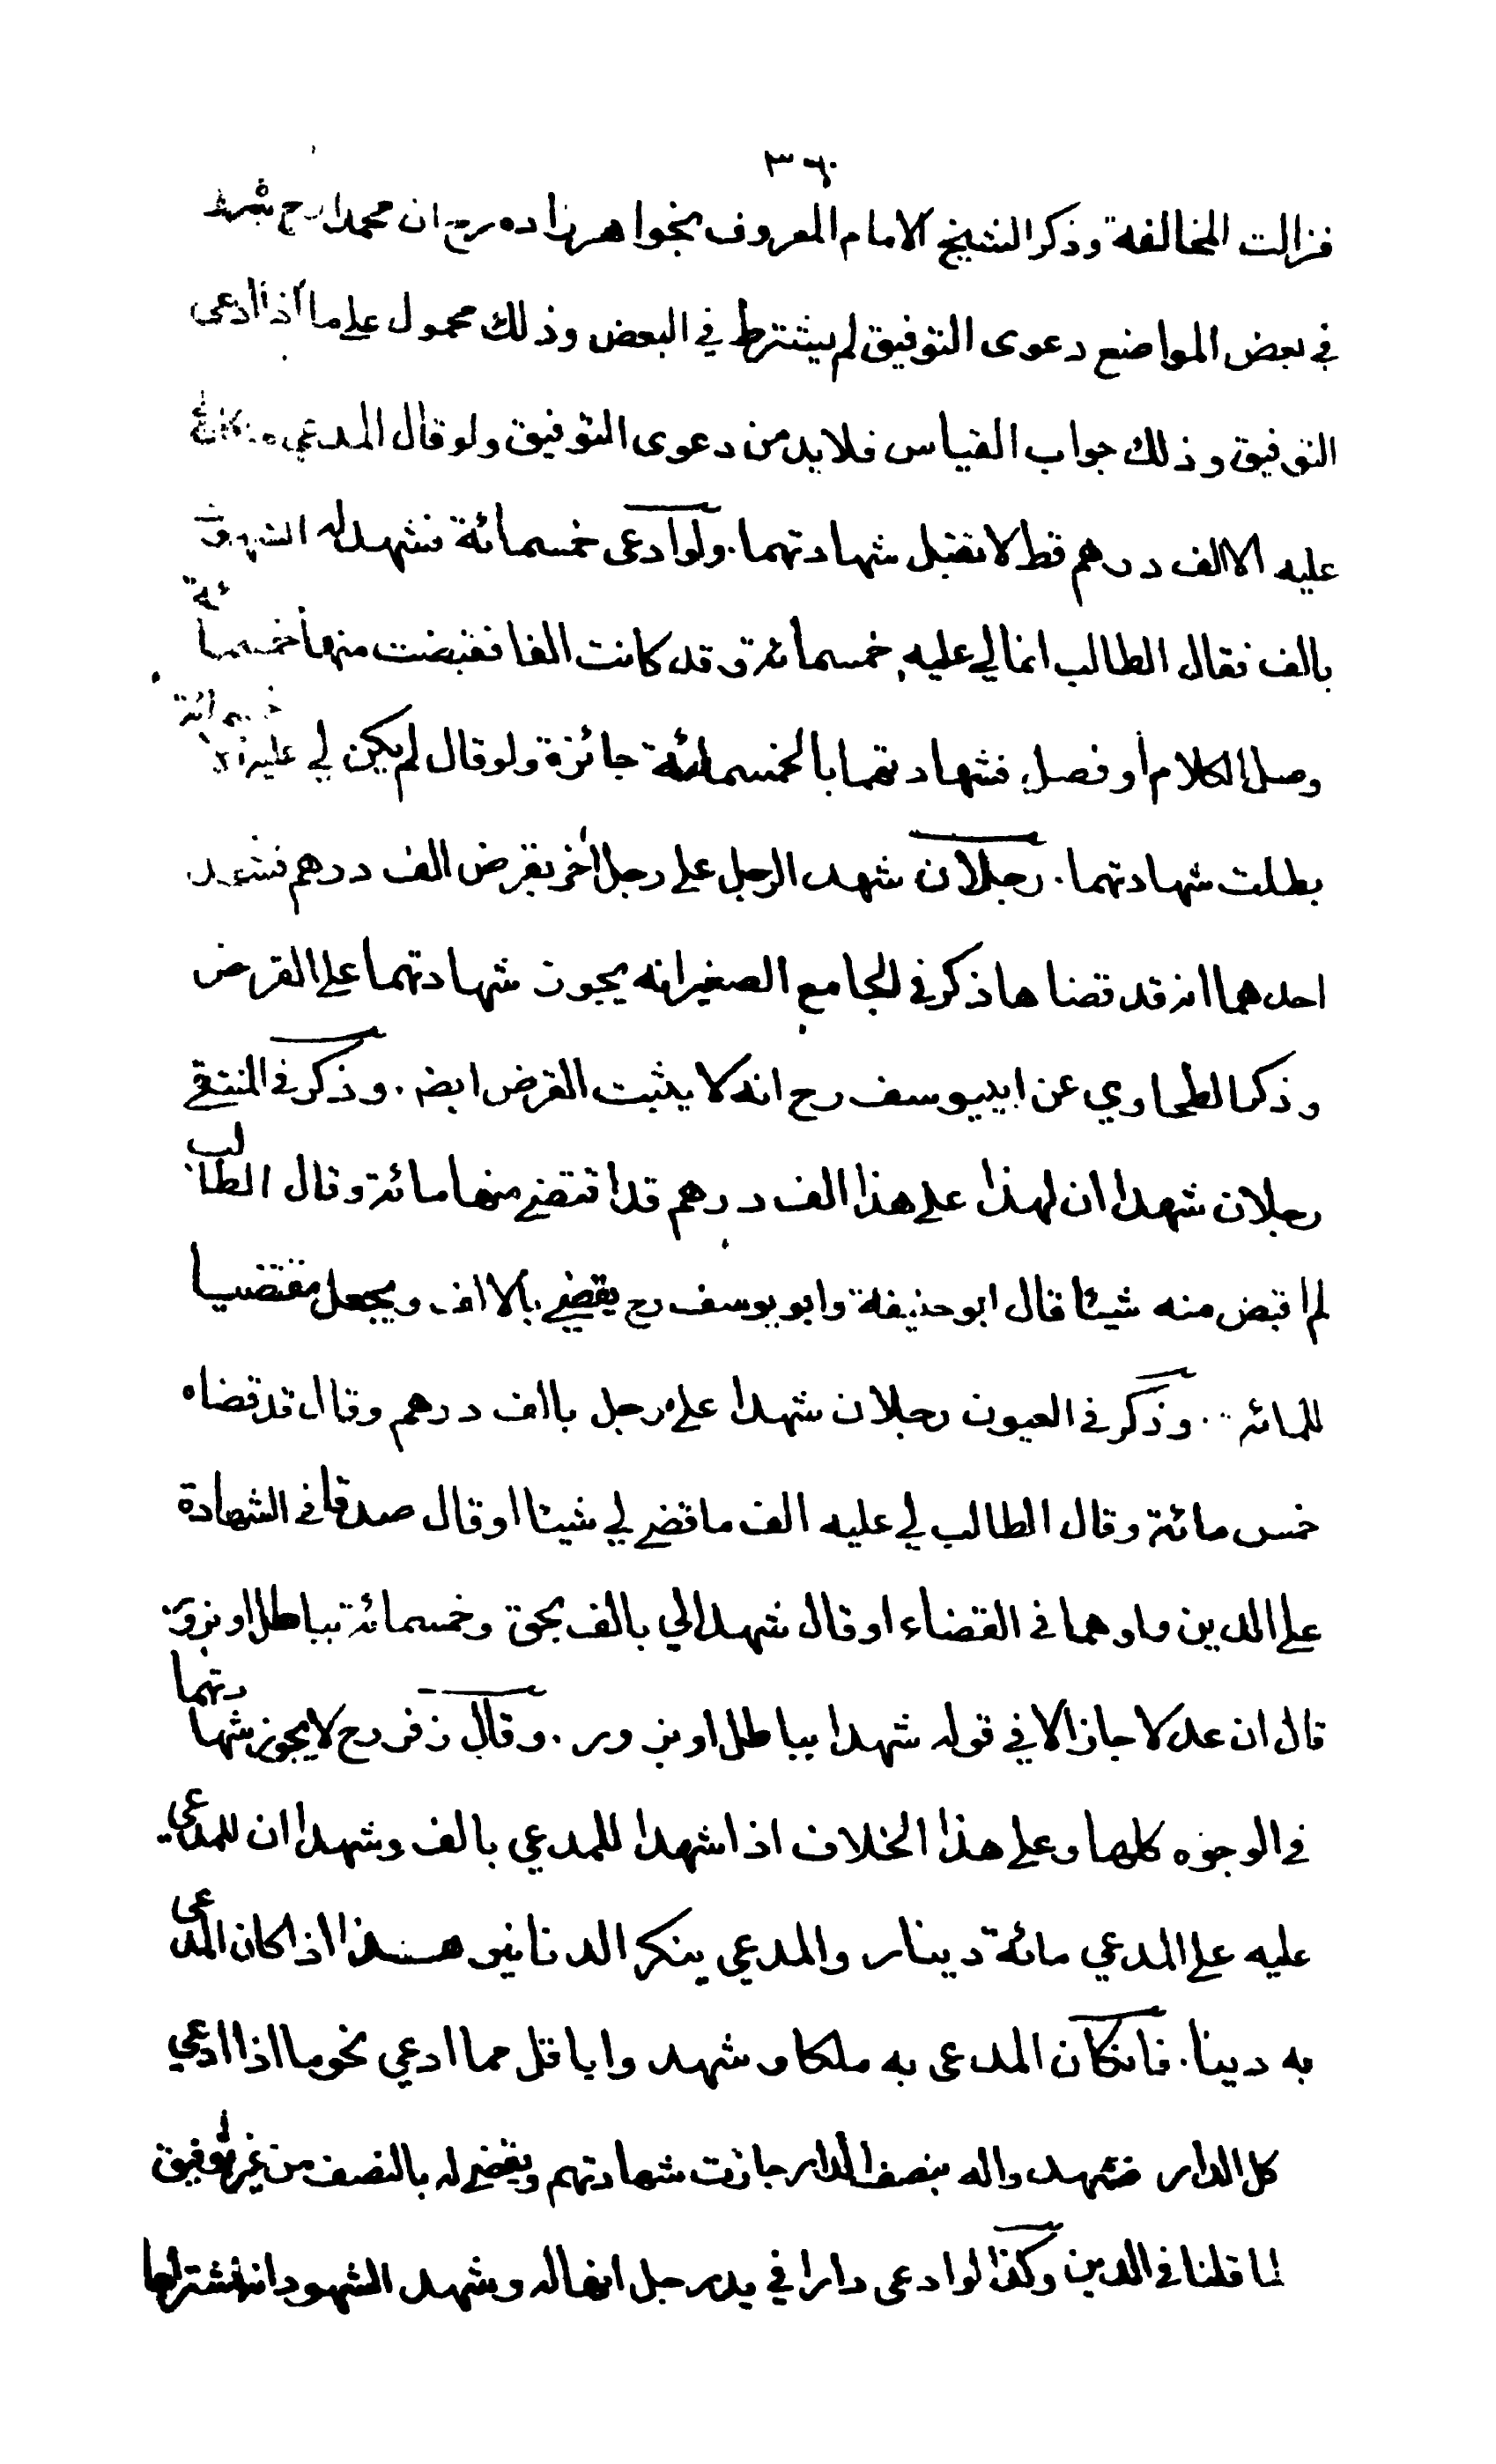 ٣٦٠
فزالت المخالفة وذكر الشيخ الامام المعروف بخواهرزاده رح ان محمدا رح شرط
في بعض المواضع دعوى التوفيق لم يشترط في البعض وذلك محمول على ما اذا ادعى
التوفيق وذلك جواب القياس فلا بد من دعوى التوفيق ولو قال المدعي ما كان لي
عليه الا الف درهم قط لا تقبل شهادتهما. ولو ادعى خمسمائة فشهد له الشهود
بالف فقال الطالب انما لي عليه خمسمائة وقد كانت الفا فقبضت منها خمسمائة
وصل الكلام او فصل فشهادتهما بالخمسمائة جائزة ولو قال لم يكن لي عليه الا خمسمائة
بطلت شهادتهما. رجلان شهدا لرجل على رجل اخر بقرض الف درهم فشهد
احدهما انه قد قضاها ذكر في الجامع الصغير انه يجوز شهادتهما على القرض
وذكر الطحاوي عن ابييوسف رح انه لا يثبت القرض ايضا. وذكر في المنتقى
رجلان شهدا ان لهذا على هذا الف درهم قد اقتضى منها مائة وقال الطالب
لم اقبض منه شيئا قال ابو حنيفة وابو يوسف رح يقضي بالالف ويجعل مقتضيا
للمائة. وذكر في العيون رجلان شهدا على رجل بالف درهم وقالا قد قضاه
خمس مائة وقال الطالب لي عليه الف ما قضى لي شيئا او قال صدقا في الشهادة
على الدين واوهما في القضاء او قال شهدا لي بالف بحق وخمسمائة بباطل او بزور
قال ان عدلا جاز الا في قوله شهدا بباطل او بزور. وقال زفر رح لا يجوز شهادتهما
في الوجوه كلها وعلى هذا الخلاف اذا شهدا للمدعي بالف وشهدا ان للمدعي
عليه على المدعي مائة دينار والمدعي ينكر الدنانير هذا اذا كان المدعى
به دينا. فان كان المدعى به ملكا وشهدوا باقل مما ادعي نحو ما اذا ادعي
كل الدار فشهدوا له بنصف الدار جازت شهادتهم ويقضى له بالنصف من غير توفيق
لما قلنا في الدين وكذا لو ادعى دارا في يد رجل انها له وشهد الشهود انه اشتراها